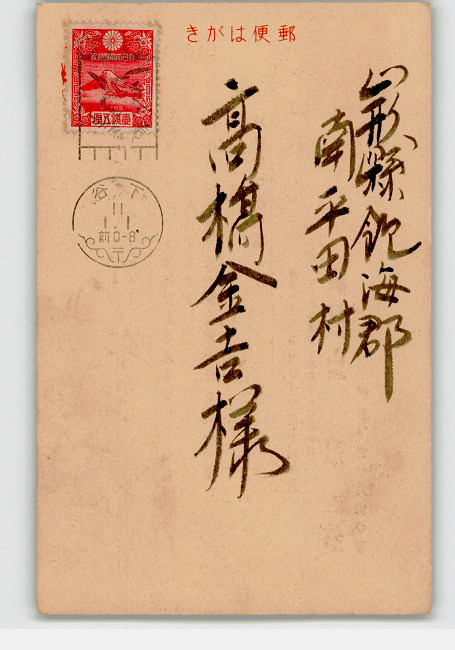 郵便はがき
山形縣飽海郡
南平田村
高橋金吉様
壹銭五厘
下谷
11
1.1
前0-8